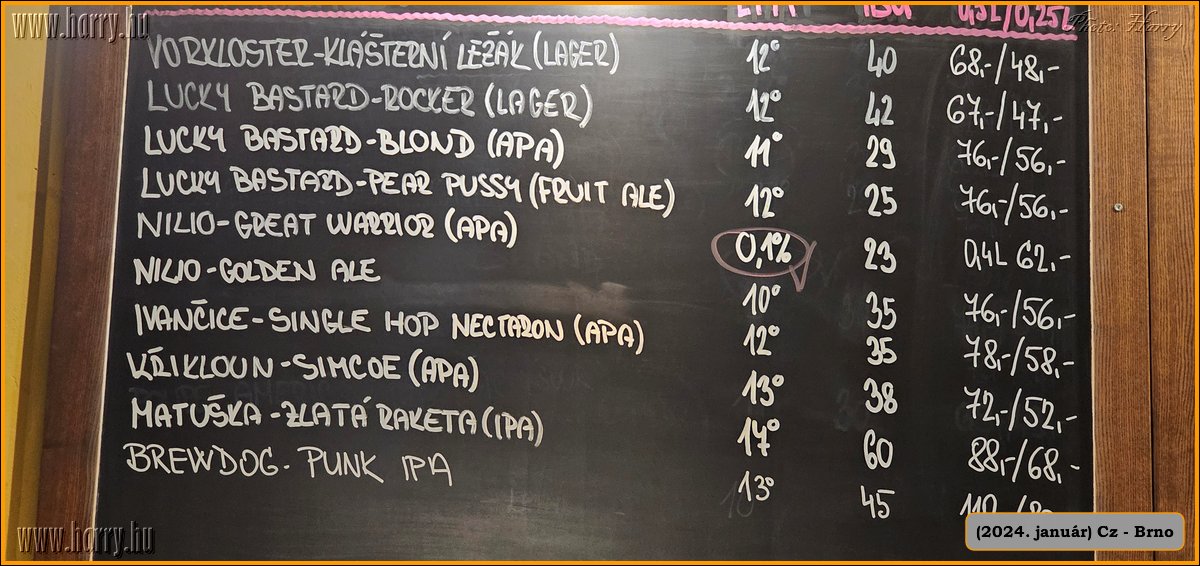 www.harry.hu
Photo: Harry
IBU 0,5L/0,25L
VORKLOSTER-KLÁŠTERNÍ LEŽÁK (LAGER) 12° 40 68,-/48,-
LUCKY BASTARD-ROCKER (LAGER) 12° 42 67,-/47,-
LUCKY BASTARD-BLOND (APA) 11° 29 76,-/56,-
LUCKY BASTARD-PEAR PUSSY (FRUIT ALE) 12° 25 76,-/56,-
NILIO-GREAT WARRIOR (APA) 0,1% 23 0,4L 62,-
NILIO-GOLDEN ALE 10° 35 76,-/56,-
IVANČICE-SINGLE HOP NECTARON (APA) 12° 35 78,-/58,-
KŘIKLOUN-SIMCOE (APA) 13° 38 72,-/52,-
MATUŠKA-ZLATÁ RAKETA (IPA) 17° 60 88,-/68,-
BREWDOG-PUNK IPA 13° 45
www.harry.hu
(2024. január) Cz - Brno